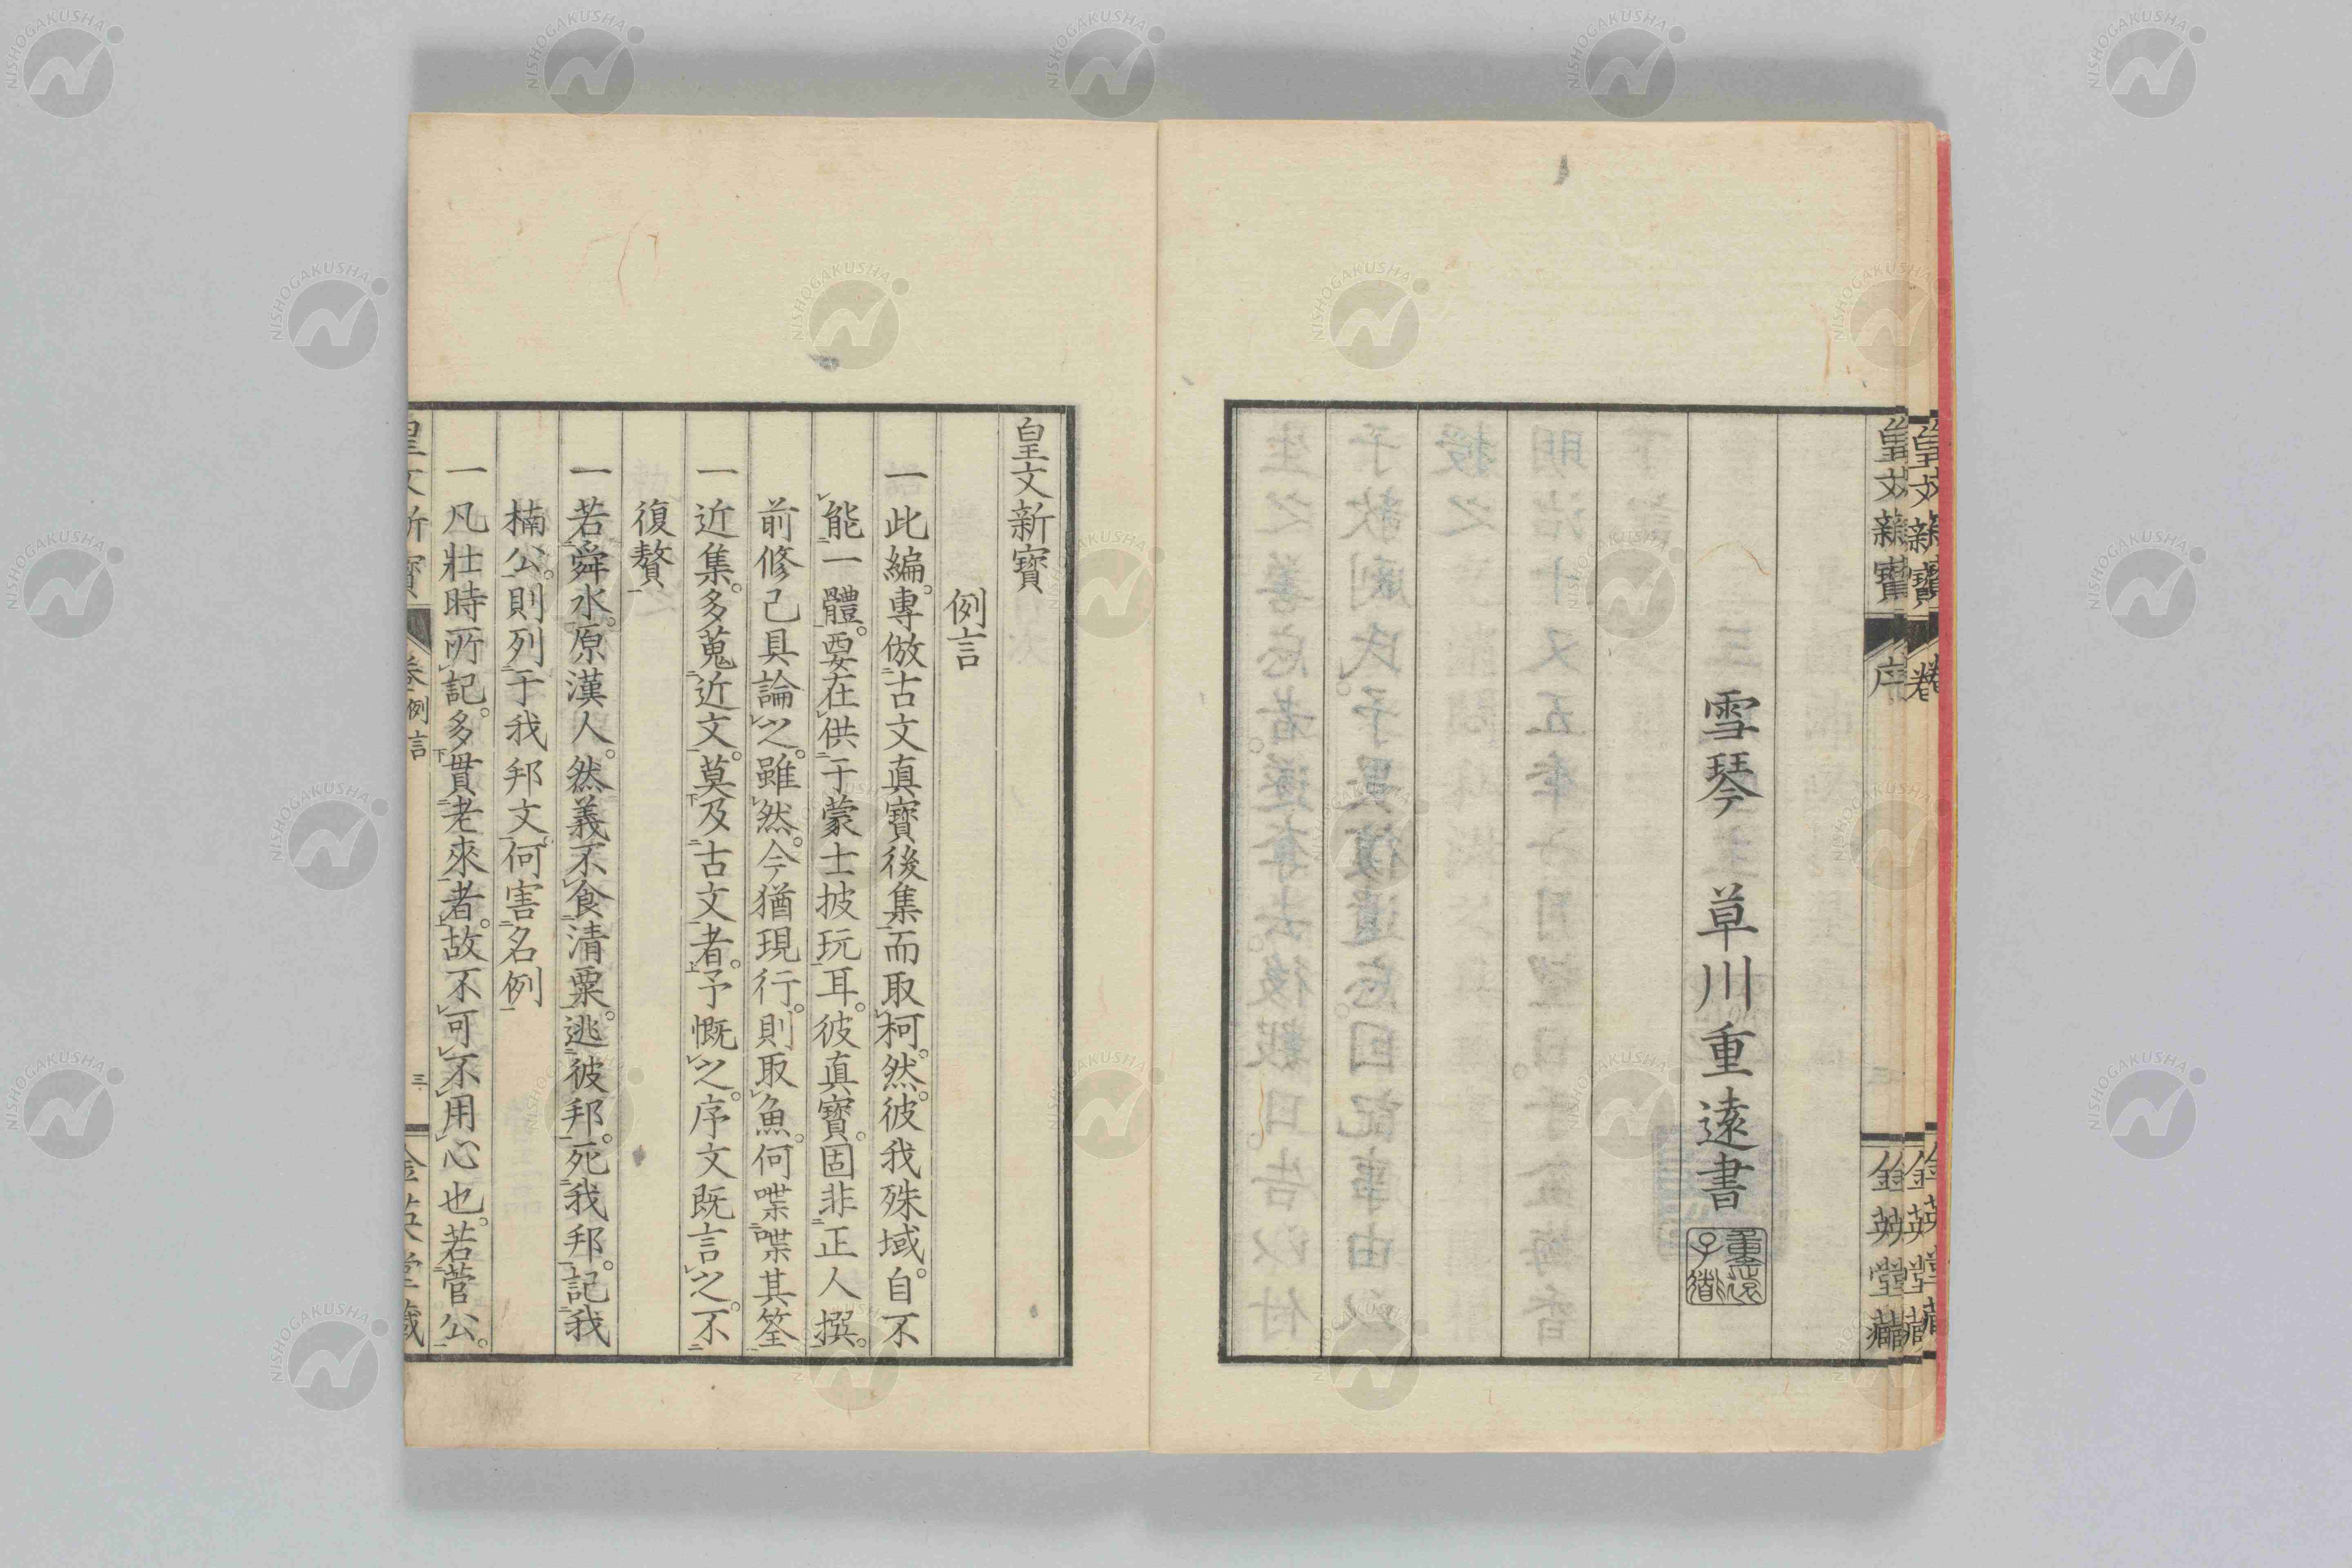 雪琴 草川重遠書
重遠
子道
皇文新寶
例言
一此編。專倣古文真寶後集而取柯。然。彼我殊域。自不
能一體。要在供于蒙士披玩耳。彼真寶。固非正人撰。
前修己具論之。雖然。今猶現行。則取魚。何喋喋其筌
一近集。多蒐近文。莫及古文者。予慨之。序文既言之。不
復贅
一若舜水。原漢人。然義不食清粟。逃彼邦。死我邦。記我
楠公。則列于我邦文。何害名例
一凡壯時所記。多貫老來者。故不可不用心也。若菅公。
皇文新寶 卷 例言 三 金英堂藏
皇文新寶 序 金英堂藏
皇文新寶 卷 金英堂藏
NISHOGAKUSHA